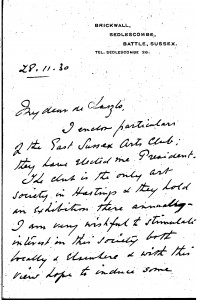 BRICKWALL,
SEDLESCOMBE,
BATTLE, SUSSEX.
TEL. SEDLESCOMBE 20.
28.11.30
My dear de Laszlo,
I enclose particulars
of the East Sussex Arts Club;
they have elected me President.
The club is the only art
society in Hastings & they hold
an exhibition there annually –
I am very wishful to stimulate
interest in this society both
locally & elsewhere & with this
view hope to induce some